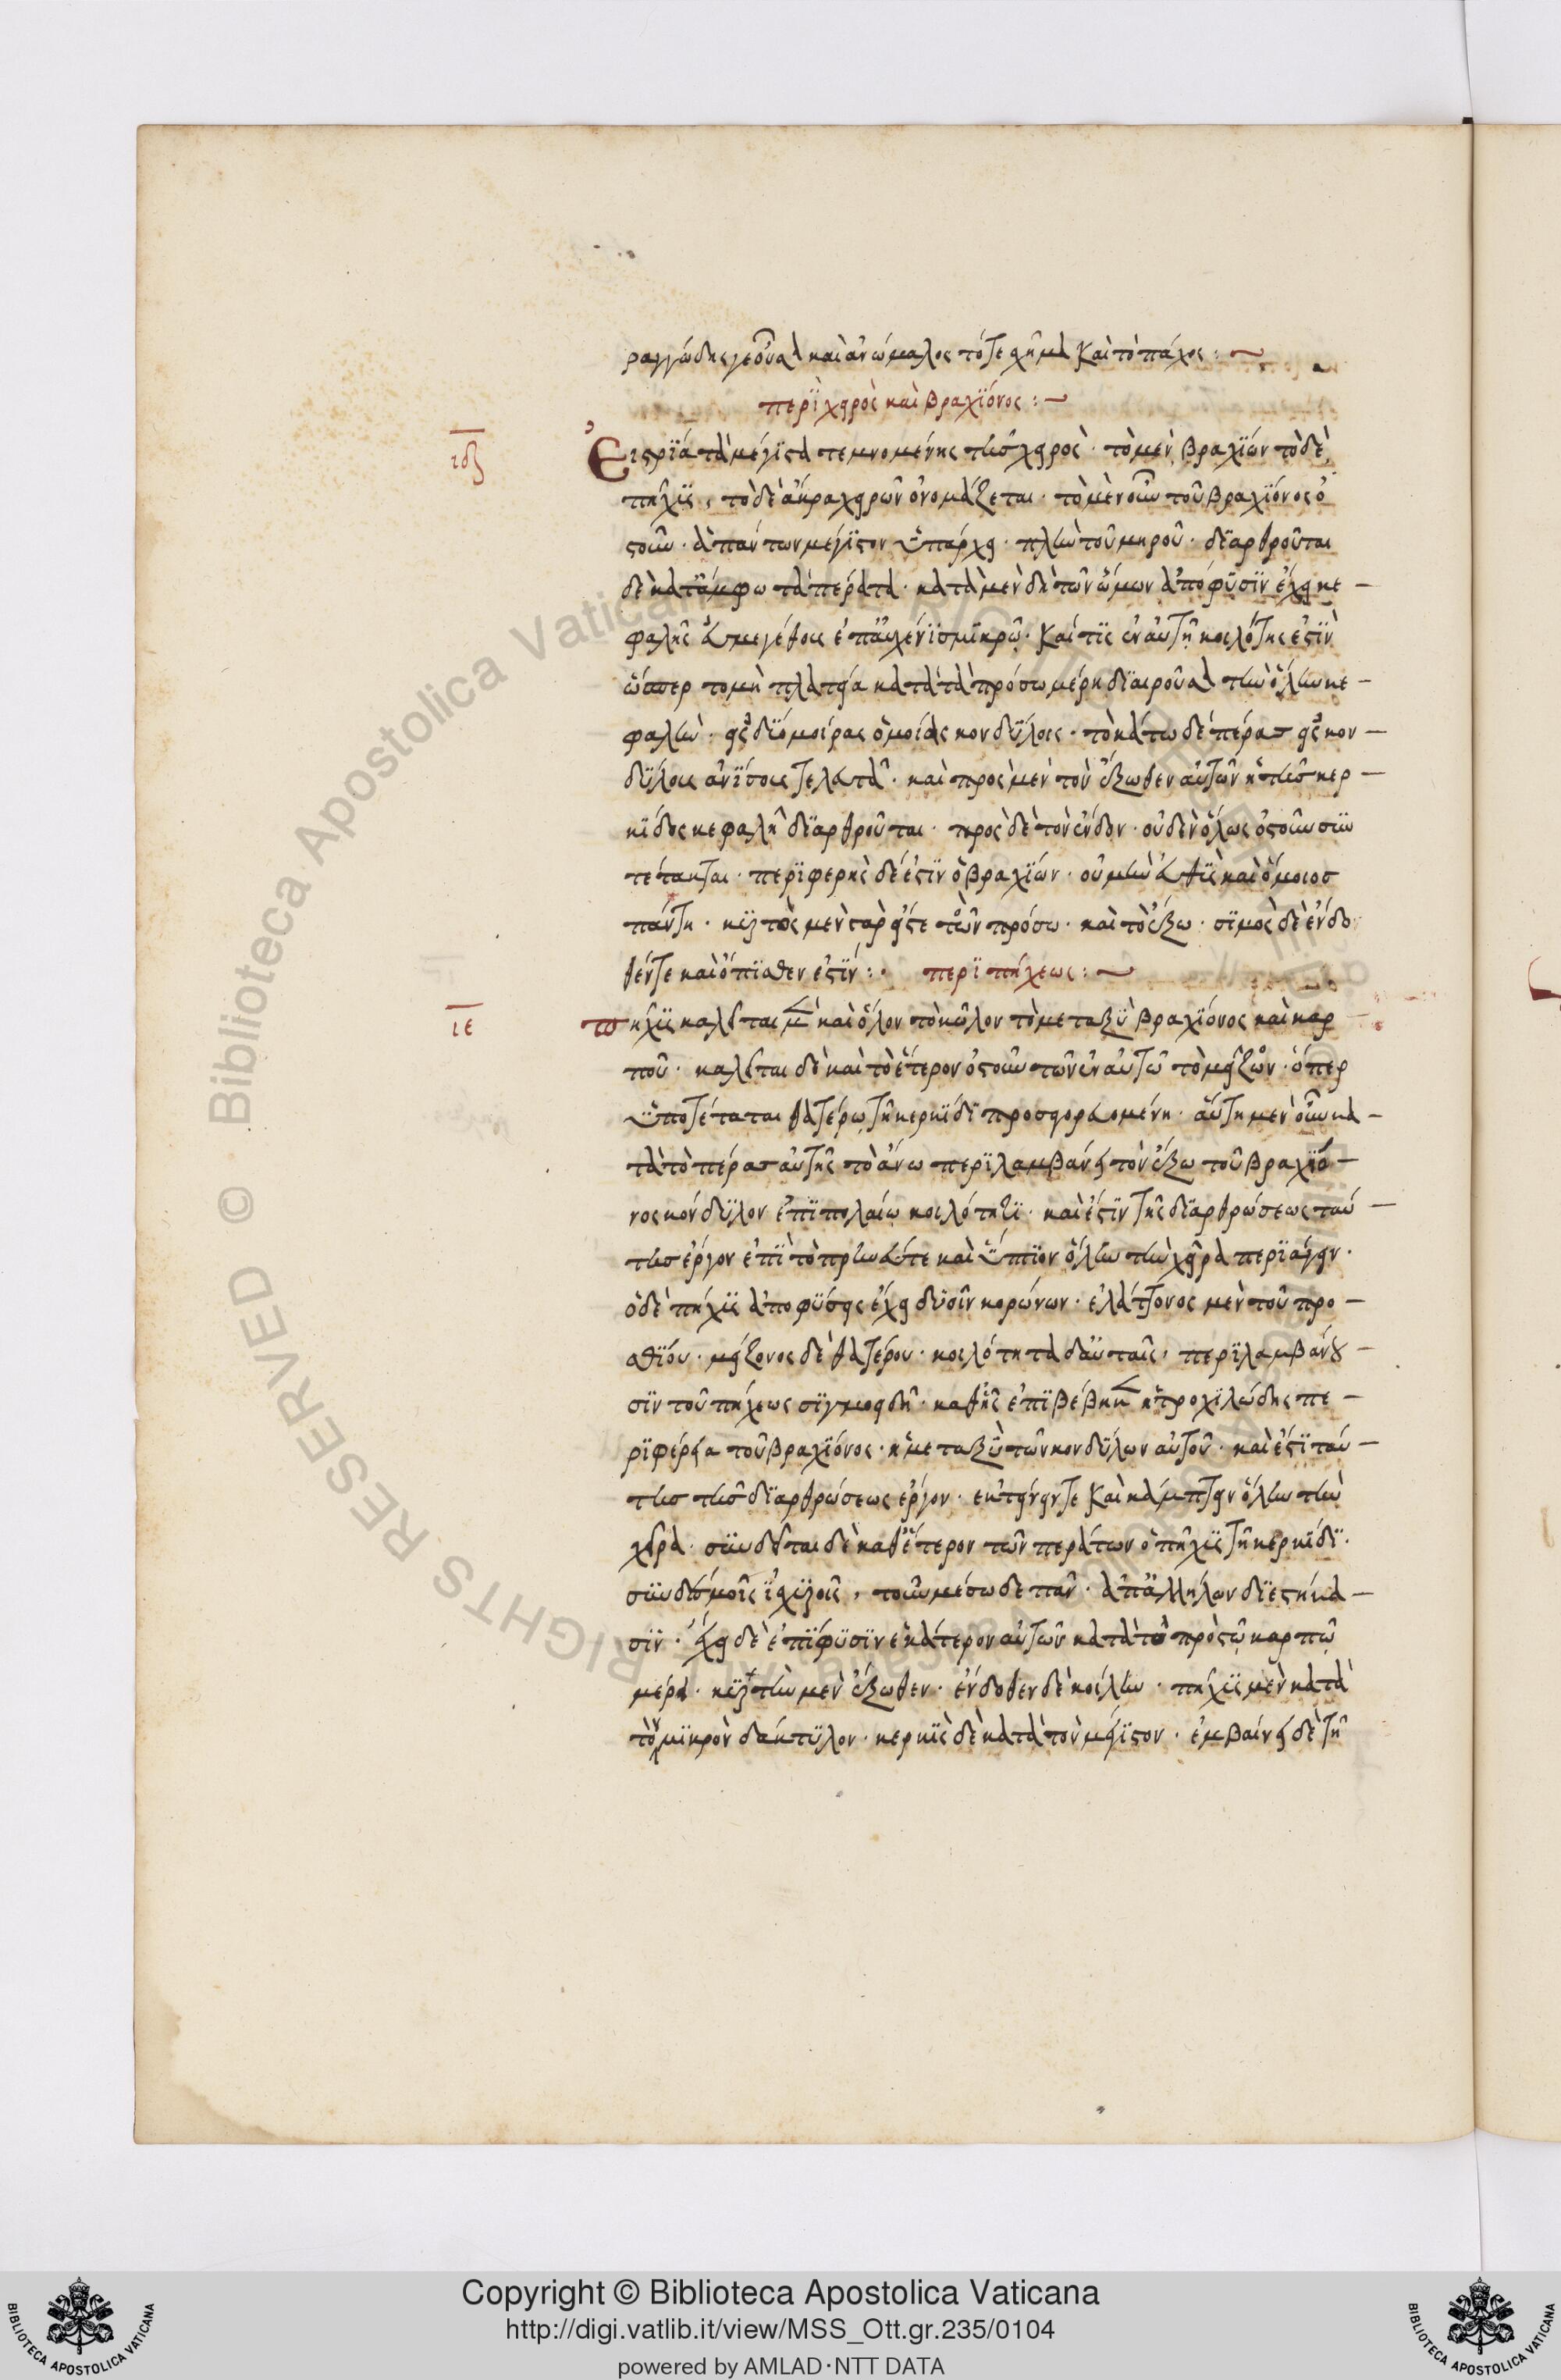 ραγγώδης γεοῦσα καὶ ἀνώμαλος τό τε χῆμα καὶ τὸ πάχος :~
περὶ χειρὸς καὶ βραχϊόνος :~
ιδ
Ἐις τρία τὰ μέγιστα τεμνομένης τῆς χειρὸς · τὸ μὲν βραχϊών τὸ δὲ
πῆχϋς, τὸ δὲ ἄκρα χειρῶν ὀνομάζεται · τὸ μὲν οὖν τοῦ βραχϊόνος ὀ
στοῦν · ἁπάντων μέγϊστον ὑπάρχει · πλὴν τοῦ μηροῦ · διαρθροῦται
δὲ κατ' ἄμφω τὰ πέρατα · κατὰ μὲν δὴ τῶν ὤμων ἀπόφυσϊν ἔχει κε-
φαλῆς εὐμεγέθους ἐπ' αὐχένϊ σμϊκρῷ · καί τϊς ἐν αὐτῇ κοιλότης ἐστϊν
ὥσπερ τομὴ πλατεῖα κατὰ τὰ πρόσω μέρη διαιροῦσα τὴν ὅλην κε-
φαλὴν · εἰς δϊὸ μοίρας ὁμοίας κονδύλοις · τὸ κάτω δὲ πέρας εἰς κον-
δύλους ἀνϊσους τελευτᾷ · καὶ πρὸς μὲν τὸν ἔξωθεν αὐτῶν ἡ τῆς κερ-
κίδος κεφαλὴ διαρθροῦται · πρὸς δὲ τὸν ἔνδον · οὐδὲν ὅλως ὀστοῦν συν
τέτακται · περϊφερὴς δέ ἐστϊν ὁ βραχϊών · οὐ μὴν εὐθὺς καὶ ὅμοιος
πάντη · κϋρτὸς μὲν γὰρ εἴς τε τῶν πρόσω · καὶ τὸ ἔξω · σϊμὸς δὲ ἔνδο
θέν τε καὶ ὄπϊσθεν ἐστϊν :· περὶ πήχεως :~
ιε
πῆχϋς καλεῖται μὲν καὶ ὅλον τὸ κῶλον τὸ μεταξὺ βραχϊόνος καὶ καρ
ποῦ · καλεῖται δὲ καὶ τὸ ἕτερον ὀστοῦν τῶν ἐν αὐτῶ τὸ μεῖζον · ὅπερ
ὑποτέταται θατέρω τῇ κερκϊδι προσαγορευομένη · αὕτη μὲν οὖν κα-
τὰ τὸ πέρας αὐτῆς τὸ ἄνω περϊλαμβάνει τὸν ἔξω τοῦ βραχϊό-
νος κόνδυλον ἐπϊπολαίω κοιλότητϊ · καὶ ἔστϊν τῆς διαρθρώσεως ταύ-
της ἔργον ἐπὶ τὸ πρηνές τε καὶ ὕπτϊον ὅλην τὴν χεῖρα περϊάγειν ·
ὁ δὲ πῆχϋς ἀποφύσεις ἔχει δυσῖν κορώνων · ἐλάττονος μὲν τοῦ προ-
σθίου · μείζονος δὲ θατέρου · κοιλότητα δ' αὗταις · περϊλαμβάνου-
σϊν τοῦ πήχεως σϊγμοειδῆ · καθ' ἧς ἐπϊβέβηκεν ἡ τροχϊλώδης πε-
ρϊφέρεια τοῦ βραχϊόνος · ἡ μεταξὺ τῶν κονδύλων αὐτοῦ · καὶ ἔστϊ ταύ-
της τῆς διαρθρώσεως ἔργον · ἐκτείνειν τε καὶ κάμπτειν ὅλην τὴν
χεῖρα · συνδεῖται δὲ καθ' ἕτερον τῶν περάτων ὁ πῆχϋς τῇ κερκίδϊ ·
συνδέσμοις ἰσχϋροῖς, τοῦ μέσω δὲ πᾶν · ἀπ' ἀλλήλων δϊεστήκα-
σϊν · ἔχει δὲ ἐπίφυσϊν ἑκάτερον αὐτῶν κατὰ τὸ πρὸς τῷ καρπῷ
μέρα · κϋρτὴν μὲν ἔξωθεν · ἔνδοθεν δὲ κοίλην · πῆχϋς μὲν κατὰ
τὸν μϊκρὸν δάκτυλον · κερκϊς δὲ κατὰ τὸν μέγϊστον · ἐμβαίνει δὲ τῇ
Copyright © Biblioteca Apostolica Vaticana
http://digi.vatlib.it/view/MSS_Ott.gr.235/0104
powered by AMLAD·NTT DATA